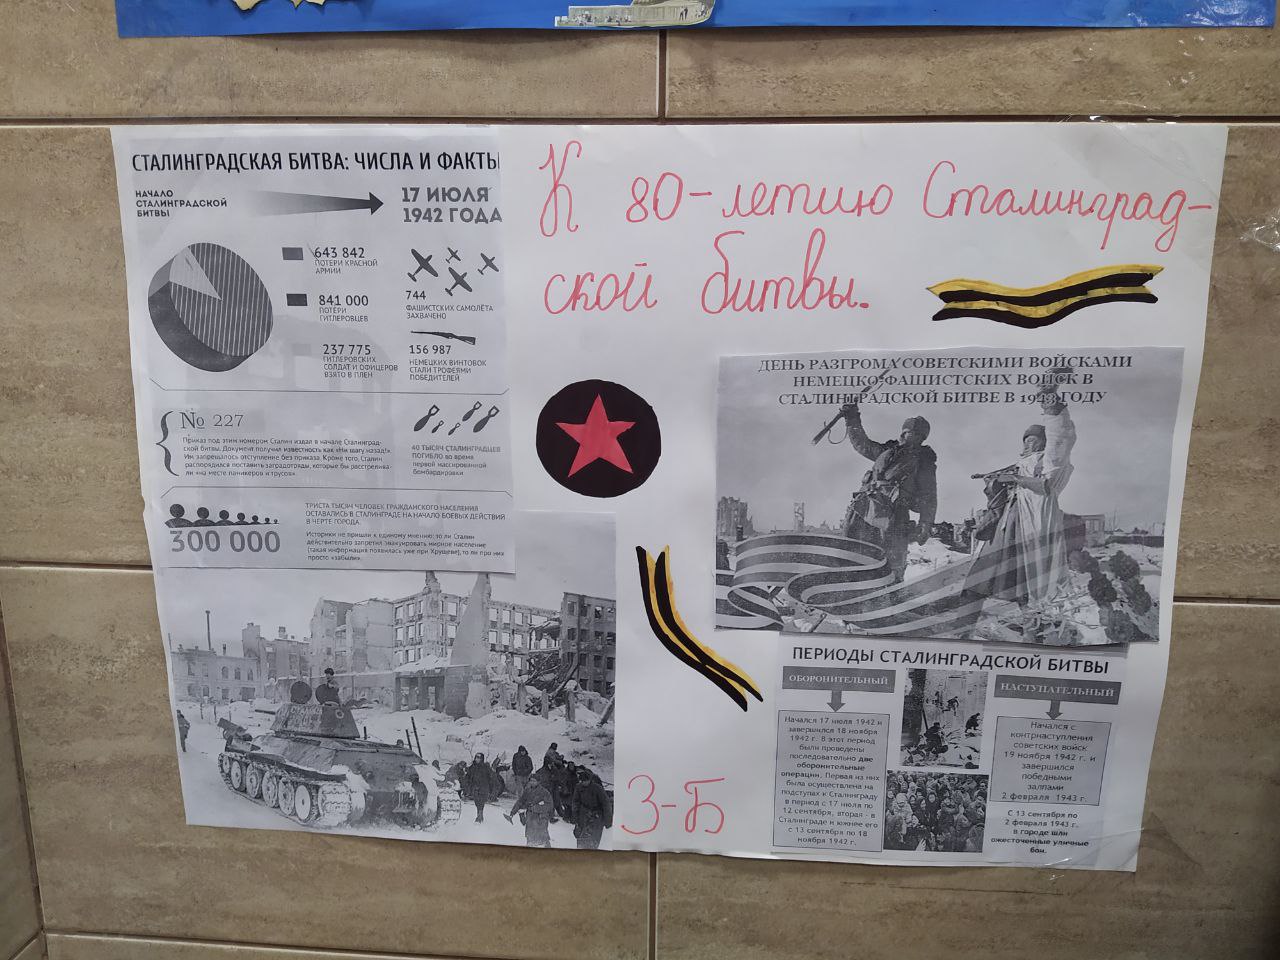 К 80-летию Сталинград-
ской битвы.
СТАЛИНГРАДСКАЯ БИТВА: ЧИСЛА И ФАКТЫ
НАЧАЛО
СТАЛИНГРАДСКОЙ
БИТВЫ
17 ИЮЛЯ
1942 ГОДА
643 842
ПОТЕРИ КРАСНОЙ
АРМИИ
841 000
ПОТЕРИ
ГИТЛЕРОВЦЕВ
237 775
ГИТЛЕРОВСКИХ
СОЛДАТ И ОФИЦЕРОВ
ВЗЯТО В ПЛЕН
744
ФАШИСТСКИХ САМОЛЁТА
ЗАХВАЧЕНО
156 987
НЕМЕЦКИХ ВИНТОВОК
СТАЛИ ТРОФЕЯМИ
ПОБЕДИТЕЛЕЙ
№ 227
Приказ под этим номером Сталин издал в начале Сталинград-
ской битвы. Документ получил известность как «Ни шагу назад!».
Им запрещалось отступление без приказа. Кроме того, Сталин
распорядился поставить заградотряды, которые бы расстрелива-
ли «на месте паникеров и трусов».
40 ТЫСЯЧ СТАЛИНГРАДЦЕВ
ПОГИБЛО во время
первой массированной
бомбардировки
300 000
ТРИСТА ТЫСЯЧ ЧЕЛОВЕК ГРАЖДАНСКОГО НАСЕЛЕНИЯ
ОСТАВАЛИСЬ В СТАЛИНГРАДЕ НА НАЧАЛО БОЕВЫХ ДЕЙСТВИЙ
В ЧЕРТЕ ГОРОДА.
Историки не пришли к единому мнению: то ли Сталин
действительно запретил эвакуировать мирное население
(такая информация появилась уже при Хрущеве), то ли про них
просто «забыли».
ДЕНЬ РАЗГРОМА СОВЕТСКИМИ ВОЙСКАМИ
НЕМЕЦКО-ФАШИСТСКИХ ВОЙСК В
СТАЛИНГРАДСКОЙ БИТВЕ В 1943 ГОДУ
ПЕРИОДЫ СТАЛИНГРАДСКОЙ БИТВЫ
ОБОРОНИТЕЛЬНЫЙ
Начался 17 июля 1942 и
завершился 18 ноября
1942 г. В этот период
были проведены
последовательно две
оборонительные
операции. Первая из них
была осуществлена на
подступах к Сталинграду
в период с 17 июля по
12 сентября, вторая - в
Сталинграде и южнее его
с 13 сентября по 18
ноября 1942 г.
НАСТУПАТЕЛЬНЫЙ
Начался с
контрнаступления
советских войск
19 ноября 1942 г. и
завершился
победными
залпами
2 февраля 1943 г.
С 13 сентября по
2 февраля 1943 г.
в городе шли
ожесточенные уличные
бои.
3-Б